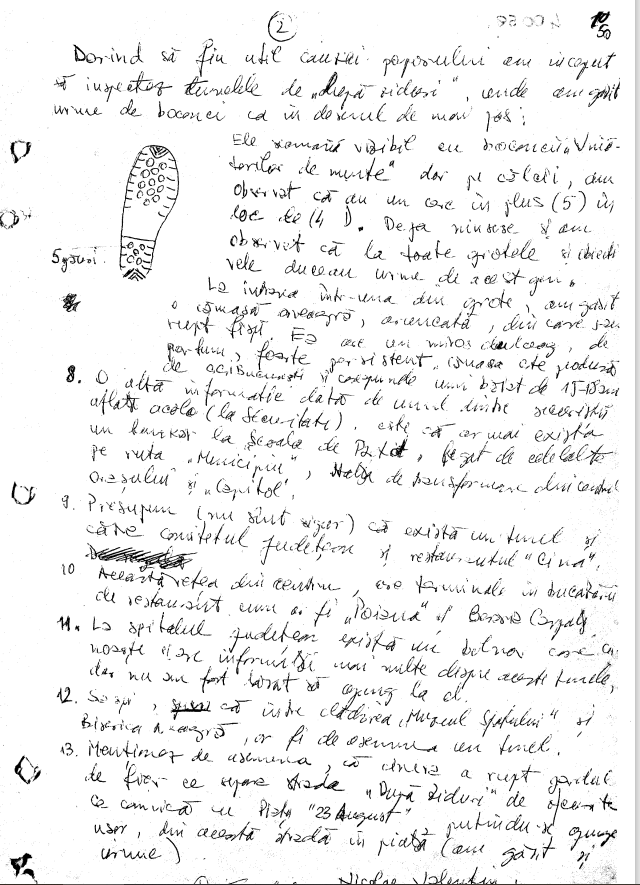 2
50
Dorind să fiu util cauzei poporului am început
să inspectez tunelele de „după ziduri", unde am găsit
urme de bocanci ca în desenul de mai jos:
Ele seamănă vizibil cu bocancii „Vînă-
torilor de munte" dar pe călcîi, am
observat că au un cerc în plus (5) în
loc de (4). Deja ninsese și am
5 găuri.
observat că la toate grotele și
duceau urme de acest gen.
La intrarea într-una din grote, am găsit
o cămașă, aruncată, din care s-au
rupt fîșii Ea are un miros dulceag, de
parfum, foarte persistent.
de și corespunde unui băiat de 15-18 ani
8. O altă informație dată de unul dintre securiștii
aflați acolo (la Securitate), este că ar mai exista
un buncăr la Școala de Partid, legat de celelalte
pe ruta „Municipiu", de transformare din centrul
orașului și „Capitol".
9. Presupun (nu sînt sigur) că există un tunel și
către comitetul județean și restaurantul "Cina".
10 Această rețea din centru, are terminale în bucătării
de restaurant cum ar fi „Poiana" și
11. La spitalul județean există un bolnav care cu-
noaște și are informații mai multe despre aceste tunele,
dar nu am fost lăsat să ajung la el.
12. că între clădirea „Muzeul Sfatului" și
Biserica Neagră, ar fi de asemenea un tunel.
13. Menționez de asemenea, că cineva a rupt gardul
de fier ce separă strada „După Ziduri" de
ce comunică cu Piața "23 August" putîndu-se ajunge
ușor, din această stradă în piață (am găsit și
urme)
Nicolae Valentin